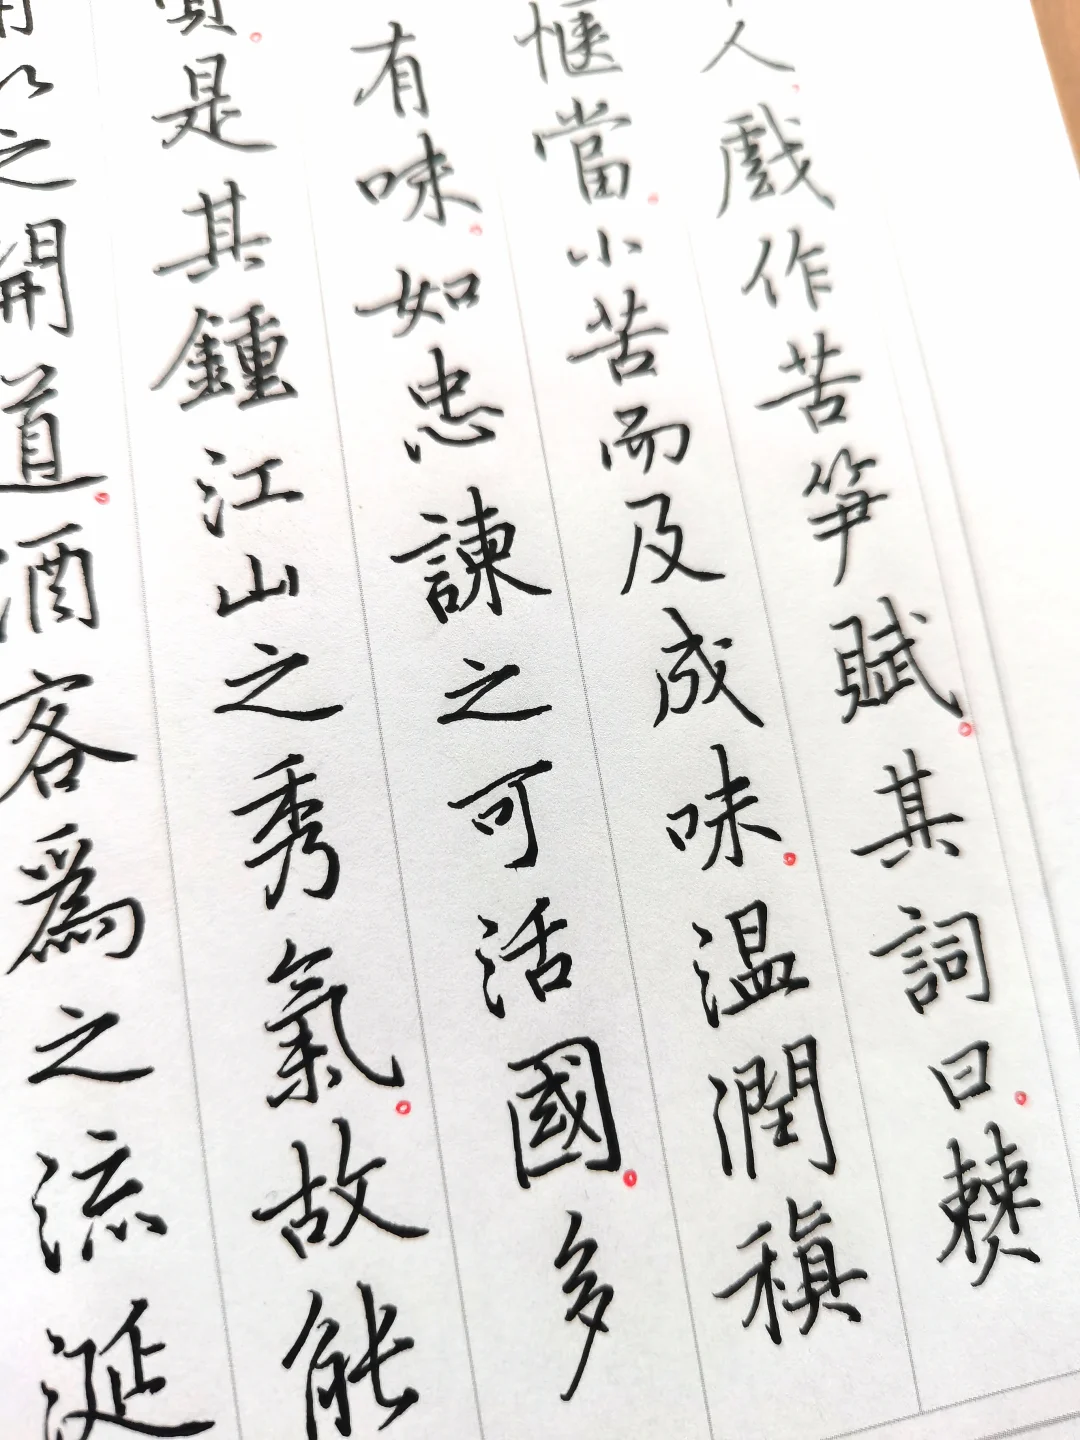 人。戲作苦笋賦。其詞曰。僰
愜當。小苦而及成味。温潤稹
有味。如忠諫之可活國。多
賢。是其鍾江山之秀氣。故能
以之開道。酒客爲之流涎